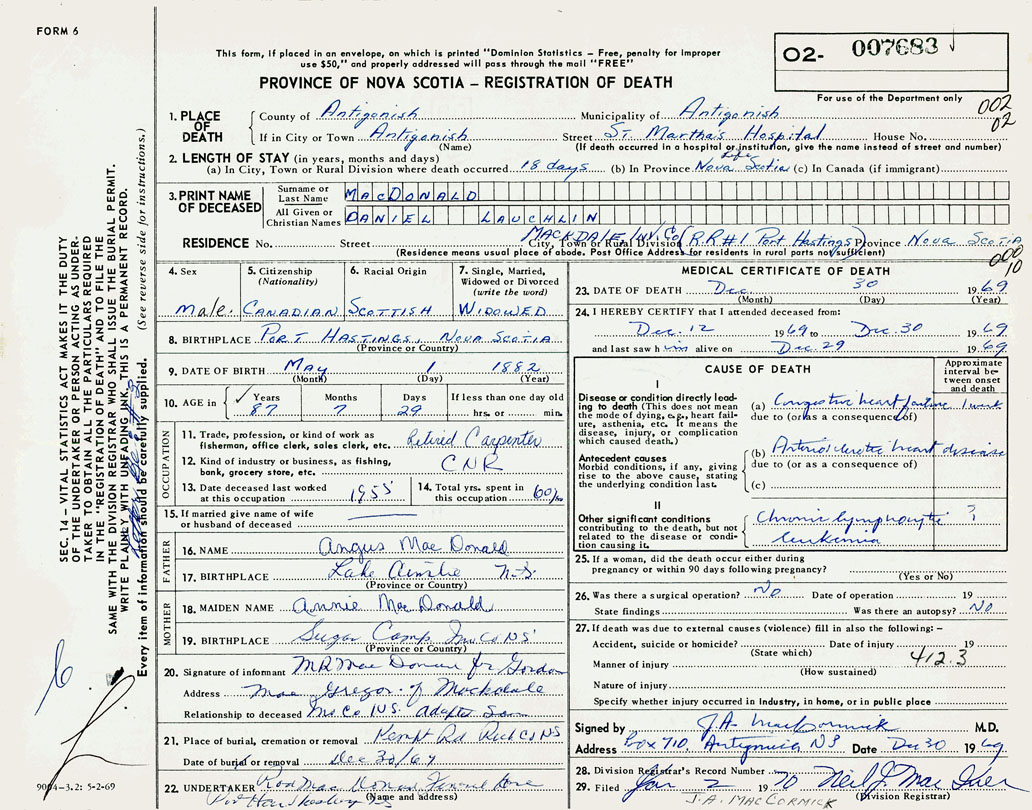 FORM 6
This form, if placed in an envelope, on which is printed "Dominion Statistics – Free, penalty for improper
use $50," and properly addressed will pass through the mail "FREE"
PROVINCE OF NOVA SCOTIA – REGISTRATION OF DEATH
O2- 007683
For use of the Department only
002
02
1. PLACE OF DEATH
County of Antigonish Municipality of Antigonish
If in City or Town Antigonish Street St. Martha's Hospital House No.
(Name) (If death occurred in a hospital or institution, give the name instead of street and number)
2. LENGTH OF STAY (in years, months and days)
(a) In City, Town or Rural Division where death occurred 18 days (b) In Province Life Nova Scotia (c) In Canada (if immigrant)
3. PRINT NAME OF DECEASED
Surname or Last Name MACDONALD
All Given or Christian Names DANIEL LAUCHLIN
RESIDENCE No. Street MACKDALE INV. CO. (R.R#1 Port Hastings) Province Nova Scotia
City, Town or Rural Division
(Residence means usual place of abode. Post Office Address for residents in rural parts not sufficient)
000
10
4. Sex Male.
5. Citizenship (Nationality) CANADIAN
6. Racial Origin SCOTTISH
7. Single, Married, Widowed or Divorced (write the word) WIDOWED
8. BIRTHPLACE PORT HASTINGS, NOVA SCOTIA
(Province or Country)
9. DATE OF BIRTH May 1 1882
(Month) (Day) (Year)
10. AGE in Years 87 Months 7 Days 29 If less than one day old hrs. or min.
OCCUPATION
11. Trade, profession, or kind of work as fisherman, office clerk, sales clerk, etc. Retired Carpenter
12. Kind of industry or business, as fishing, bank, grocery store, etc. CNR
13. Date deceased last worked at this occupation 1955
14. Total yrs. spent in this occupation 60
15. If married give name of wife or husband of deceased
FATHER
16. NAME Angus Mac Donald
17. BIRTHPLACE Lake Ainslie N.S.
(Province or Country)
MOTHER
18. MAIDEN NAME Annie Mac Donald
19. BIRTHPLACE Sugar Camp Inv Co NS
(Province or Country)
20. Signature of informant Gordon
Address Mac Gregor Mackdale
Relationship to deceased Inv Co N.S. Adopted Son
21. Place of burial, cremation or removal Kempt Rd Rich Co NS
Date of burial or removal Dec 30/69
22. UNDERTAKER
(Name and address)
MEDICAL CERTIFICATE OF DEATH
23. DATE OF DEATH Dec. 30 1969
(Month) (Day) (Year)
24. I HEREBY CERTIFY that I attended deceased from:
Dec. 12 1969 to Dec. 30 1969
and last saw him alive on Dec. 29 1969
CAUSE OF DEATH
Approximate interval between onset and death
I
Disease or condition directly leading to death (This does not mean the mode of dying, e.g., heart failure, asthenia, etc. It means the disease, injury, or complication which caused death.)
(a) Congestive heart failure 1 week
due to (or as a consequence of)
Antecedent causes
Morbid conditions, if any, giving rise to the above cause, stating the underlying condition last.
(b) Arteriosclerotic heart disease
due to (or as a consequence of)
(c)
II
Other significant conditions contributing to the death, but not related to the disease or condition causing it.
Chronic lymphocytic leukemia ?
25. If a woman, did the death occur either during pregnancy or within 90 days following pregnancy?
(Yes or No)
26. Was there a surgical operation? NO Date of operation 19
State findings Was there an autopsy? NO
27. If death was due to external causes (violence) fill in also the following: –
Accident, suicide or homicide? Date of injury 19
(State which)
412.3
Manner of injury
(How sustained)
Nature of injury
Specify whether injury occurred in Industry, in home, or in public place
Signed by J.A. MacCormick M.D.
Address Box 710, Antigonish NS Date Dec 30 1969
28. Division Registrar's Record Number
29. Filed Jan 2 1970
(Division Registrar)
J.A. MACCORMICK
SEC. 14 – VITAL STATISTICS ACT MAKES IT THE DUTY
OF THE UNDERTAKER OR PERSON ACTING AS UNDERTAKER TO OBTAIN ALL THE PARTICULARS REQUIRED
IN THE "REGISTRATION OF DEATH" AND TO FILE THE
SAME WITH THE DIVISION REGISTRAR WHO SHALL ISSUE THE BURIAL PERMIT.
WRITE PLAINLY WITH UNFADING INK. THIS IS A PERMANENT RECORD.
Every item of information should be carefully supplied. (See reverse side for instructions.)
9004-3.2: 5-2-69